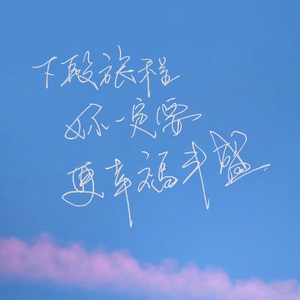 下段旅程
你一定要
更幸福丰盛